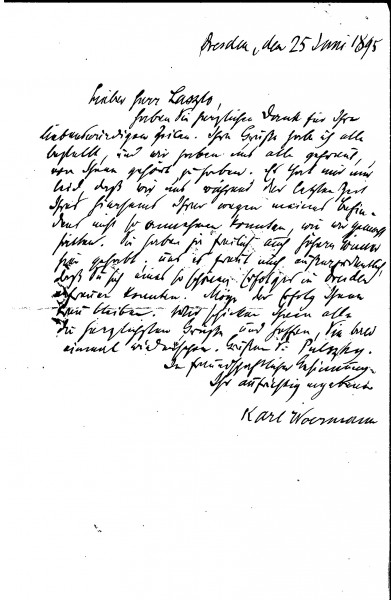 Dresden, den 25 Juni 1895
Lieber Herr Laszlo,
Haben Sie herzlichen Dank für Ihre
liebenswürdigen Zeilen. Ihre Grüße habe ich alle
bestellt, und wir haben uns alle gefreut,
von Ihnen gehört zu haben. Es thut mir nur
leid, daß wir uns während der letzten Zeit
Ihres Hierseins Ihrer wegen meines Befin-
dens nicht so annehmen konnten, wie wir gewünscht
hätten. Sie haben ja freilich auch
gehabt, und es freut mich außerordentlich,
daß Sie sich eines so schönen Erfolges in Dresden
erfreuen konnten. Möge der Erfolg Ihnen
treu bleiben. Wir schicken Ihnen alle
die herzlichsten Grüße und hoffen, Sie bald
einmal wiederzusehen. Grüßen Sie Pulszky.
In freundschaftlicher Gesinnung
Ihr aufrichtig ergebener
Karl Woermann